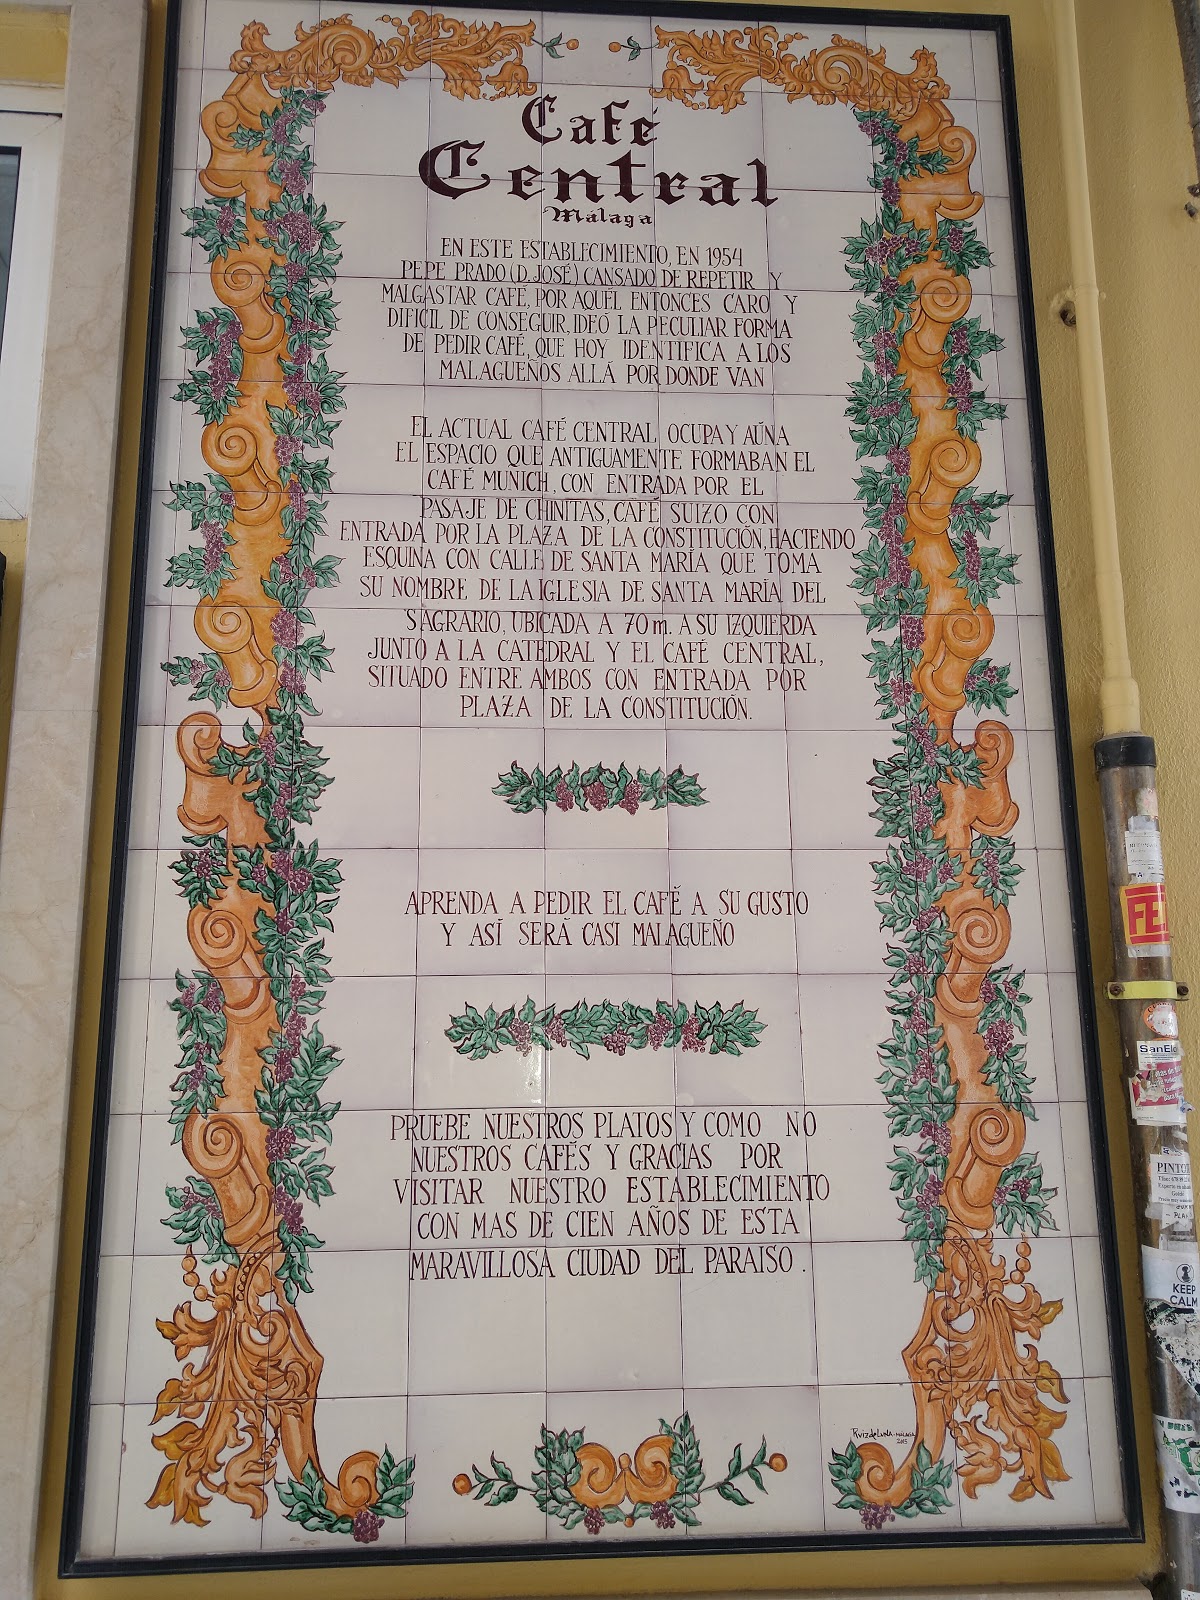 Café
Central
Málaga
EN ESTE ESTABLECIMIENTO, EN 1954
PEPE PRADO (D. JOSÉ) CANSADO DE REPETIR Y
MALGASTAR CAFÉ, POR AQUÉL ENTONCES CARO Y
DIFICIL DE CONSEGUIR, IDEÓ LA PECULIAR FORMA
DE PEDIR CAFÉ, QUE HOY IDENTIFICA A LOS
MALAGUEÑOS ALLÁ POR DONDE VAN
EL ACTUAL CAFÉ CENTRAL OCUPA Y AÚNA
EL ESPACIO QUE ANTIGUAMENTE FORMABAN EL
CAFÉ MUNICH, CON ENTRADA POR EL
PASAJE DE CHINITAS, CAFÉ SUIZO CON
ENTRADA POR LA PLAZA DE LA CONSTITUCIÓN, HACIENDO
ESQUINA CON CALLE DE SANTA MARÍA QUE TOMA
SU NOMBRE DE LA IGLESIA DE SANTA MARÍA DEL
SAGRARIO, UBICADA A 70 m. A SU IZQUIERDA
JUNTO A LA CATEDRAL Y EL CAFÉ CENTRAL,
SITUADO ENTRE AMBOS CON ENTRADA POR
PLAZA DE LA CONSTITUCIÓN.
APRENDA A PEDIR EL CAFÉ A SU GUSTO
Y ASÍ SERÁ CASI MALAGUEÑO
PRUEBE NUESTROS PLATOS Y COMO NO
NUESTROS CAFÉS Y GRACIAS POR
VISITAR NUESTRO ESTABLECIMIENTO
CON MAS DE CIEN AÑOS DE ESTA
MARAVILLOSA CIUDAD DEL PARAISO.
Ruiz de Luna - MÁLAGA
2015
FE
SanElo
PINTO
KEEP
CALM